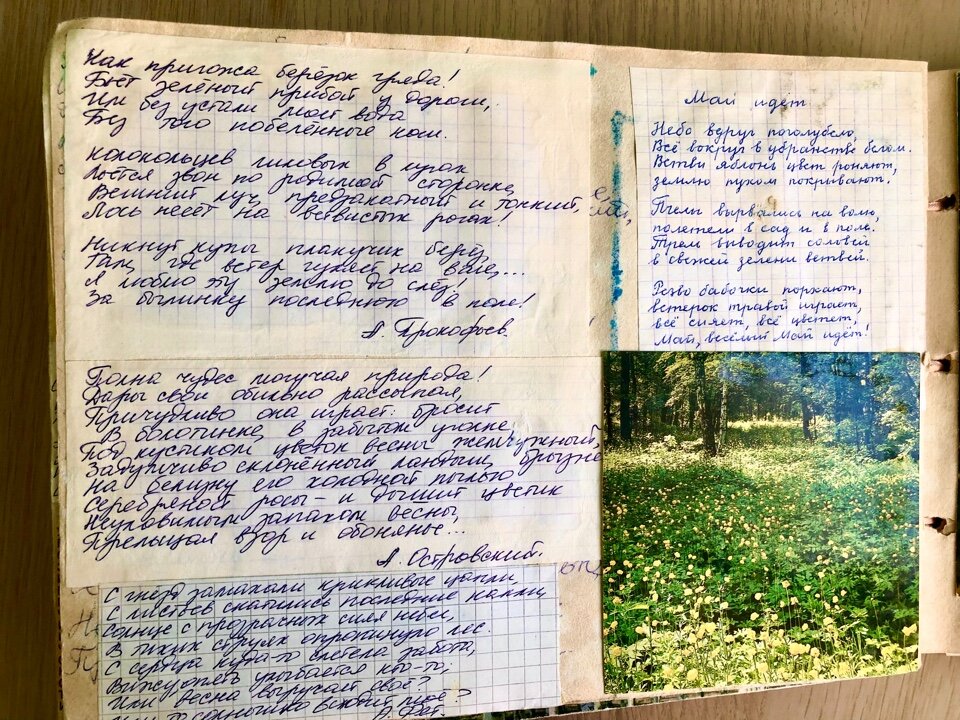 Как пригожа берёзок гряда!
Бьёт зелёный прибой у дороги,
Или без устали моет вода
Без того побелённые ноги.
Колокольцев лиловых в лугах
Льётся звон по родимой сторонке,
Вешний луч, предзакатный и тонкий,
Лось несёт на ветвистых рогах!
Никнут купы плакучих берёз,
Там, где ветер гуляет на воле...
Я люблю эту землю до слёз!
За былинку последнюю в поле!
А. Прокофьев.
Полна чудес могучая природа!
Дары свои обильно рассыпая,
Причудливо она играет: бросит
В болотинке, в забытом уголке
Под кустиком цветок весны жемчужный,
Задумчиво склонённый ландыш, брызнет
на белизну его холодной пылью
Серебряной росы – и дышит цветик
Неуловимым запахом весны,
Прельщая взор и обонянье...
А. Островский.
С гнёзд замахали крикливые цапли,
С листьев скатились последние капли,
Солнце с прозрачных сияя небес,
В тихих струях опрокинуло лес.
С сердца куда-то слетела забота,
Вижу, опять улыбается кто-то;
Или весна выручает своё?
Или и солнышко всходит моё?
А. Фет.
Май идёт
Небо вдруг поголубело,
Всё вокруг в убранстве белом.
Ветви яблонь цвет роняют,
землю пухом покрывают.
Пчелы вырвались на волю,
полетели в сад и в поле.
Трели выводит соловей
в свежей зелени ветвей.
Резво бабочки порхают,
ветерок травой играет,
всё сияет, всё цветет,
Май, весёлый Май идёт!